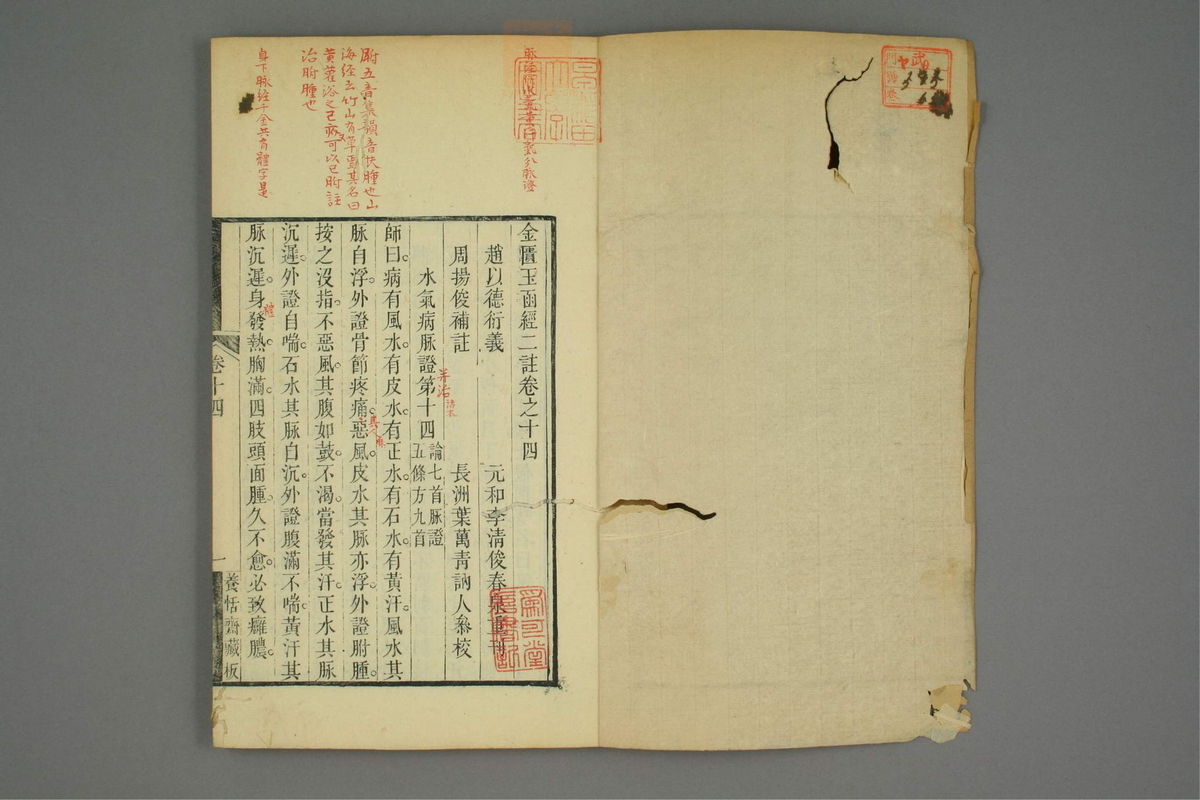 金匱玉函經二註卷之十四
趙以德衍義
元和李清俊春泉重刊
周揚俊補註
長洲葉萬青訥人叅校
水氣病脈證第十四
論七首脈證
五條方九首
并治
師曰病有風水有皮水有正水有石水有黃汗風水其
脈自浮外證骨節疼痛惡風皮水其脈亦浮外證胕腫
按之沒指不惡風其腹如鼓不渴當發其汗正水其脈
沉遲外證自喘石水其脈自沉外證腹滿不喘黃汗其
脈沉遲身發熱胸滿四肢頭面腫久不愈必致癰膿
體
卷十四
一
養恬齋藏板
胕五音集韻音扶腫也山
海経云竹山有草焉其名曰
黃雚浴之已疥又可以已胕註
治胕腫也
身下脉経千金共有體字是